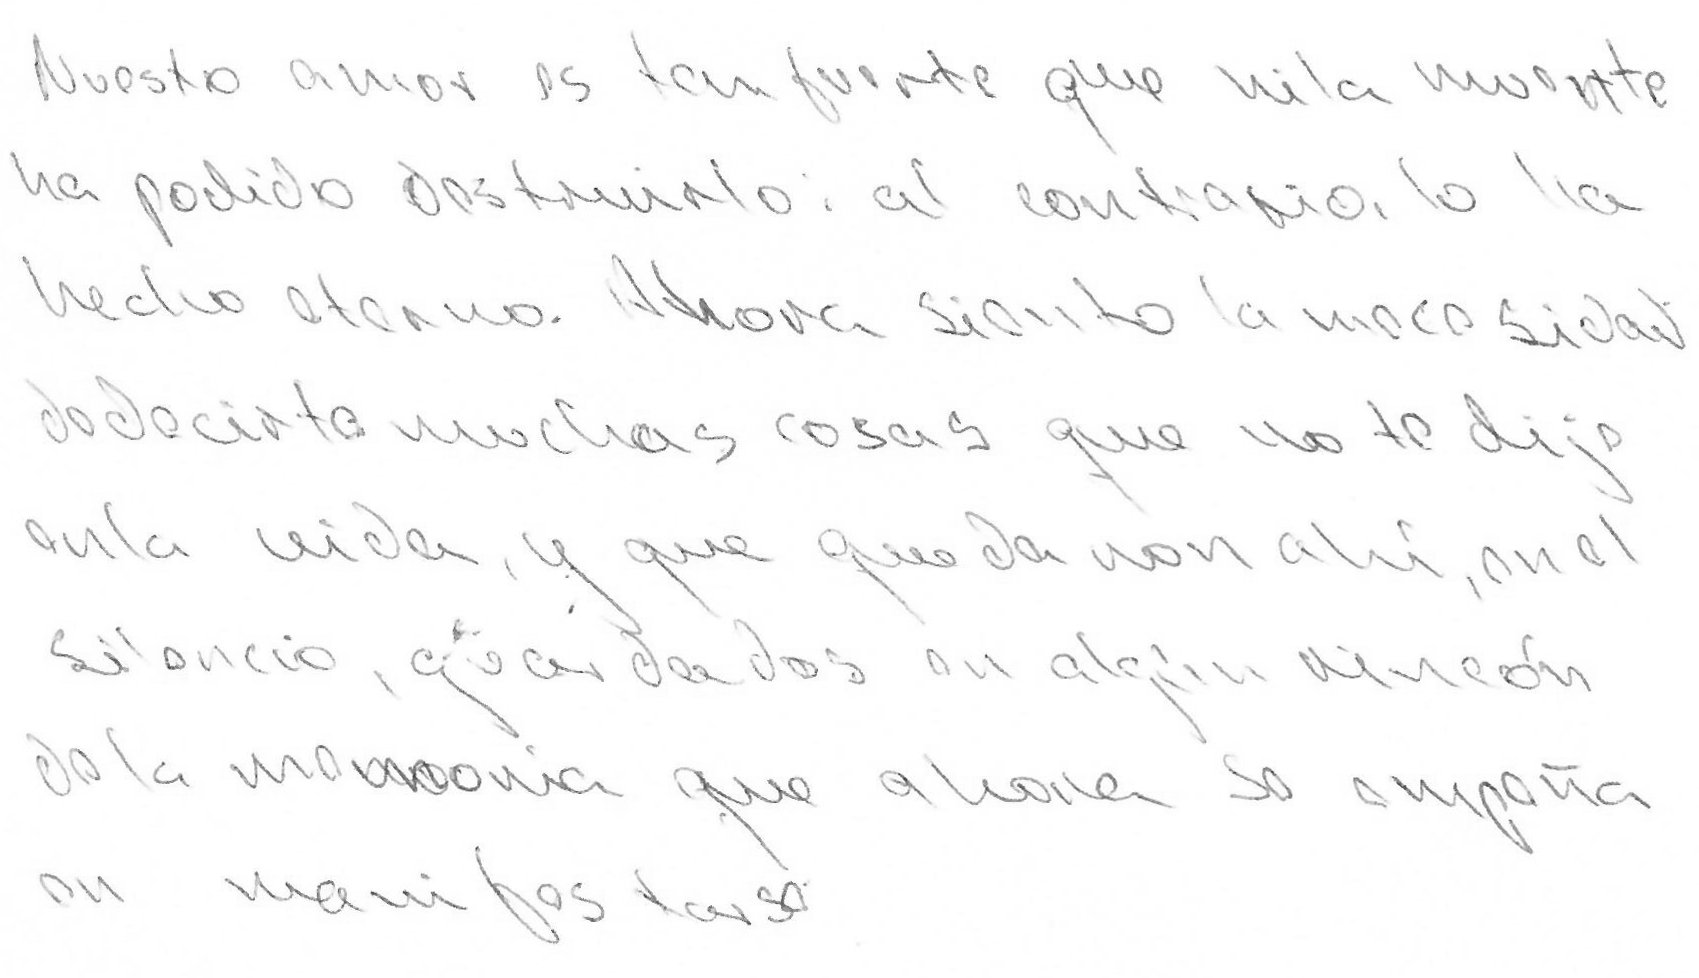 Nuestro amor es tan fuerte que ni la muerte
ha podido destruirlo: al contrario, lo ha
hecho eterno. Ahora siento la necesidad
de decirte muchas cosas que no te dije
en la vida, y que quedaron ahí, en el
silencio, guardados en algún rincón
de la memoria que ahora se empeña
en manifestarse